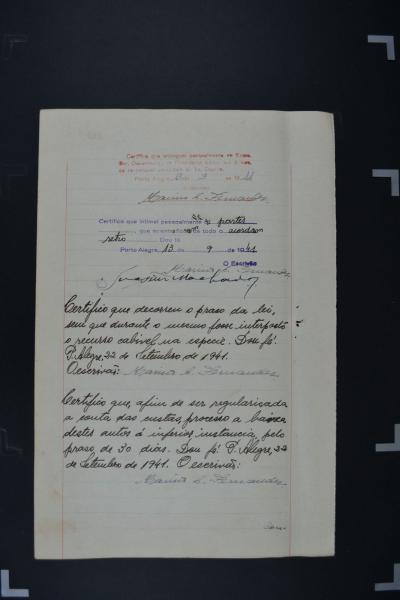 Certifico que intimei pessoalmente os Exmos.
Snr. Desembargador
Porto Alegre, 13 de 9 de 1941
Marino L. Fernandes
Certifico que intimei pessoalmente as partes
que scientes de todo o acordam
retro Dou fé.
Porto Alegre, 13 de 9 de 1941
O Escrivão
Marino L. Fernandes
Certifico que decorreu o praso da lei,
sem que durante o mesmo fosse interposto
o recurso cabivel na especie. Dou fé.
P. Alegre, 22 de Setembro de 1941.
O escrivão: Marino L. Fernandes
Certifico que, afim de ser regularisada
a conta das custas, processo a baixa
destes autos á inferior instancia, pelo
praso de 30 dias. Dou fé. P. Alegre, 22
de Setembro de 1941. O escrivão:
Marino L. Fernandes